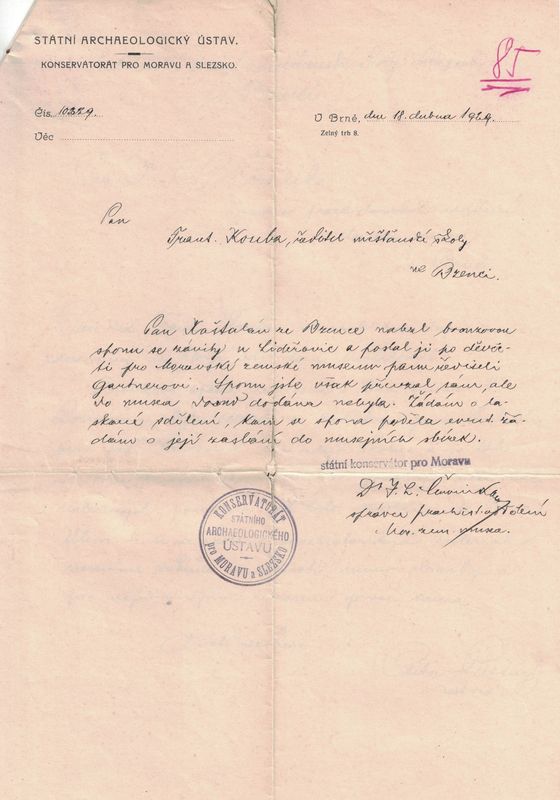 STÁTNÍ ARCHAEOLOGICKÝ ÚSTAV.
KONSERVATORÁT PRO MORAVU A SLEZSKO.
85
Čís. 10229.
Věc
V Brně, dne 18. dubna 1929.
Zelný trh 8.
Pan
Frant. Kouba, ředitel měšťanské školy
ve Bzenci.
Pan Koštalán ze Bzence nalezl bronzovou
sponu se závity u Lidéřovic a poslal ji po děvče-
ti pro Moravské zemské museum panu řediteli
Gartnerovi. Sponu jste však převzal sam, ale
do musea dosud dodána nebyla. Žádám o la-
skavé sdělení, kam se spona poděla event. žá-
dám o její zaslání do musejních sbírek.
státní konservátor pro Moravu
Dr I. L. Červinka
správce praehist. oddělení
Mor. zem. musea.
KONSERVATORÁT
STÁTNÍHO
ARCHAEOLOGICKÉHO
ÚSTAVU
pro MORAVU a SLEZSKO